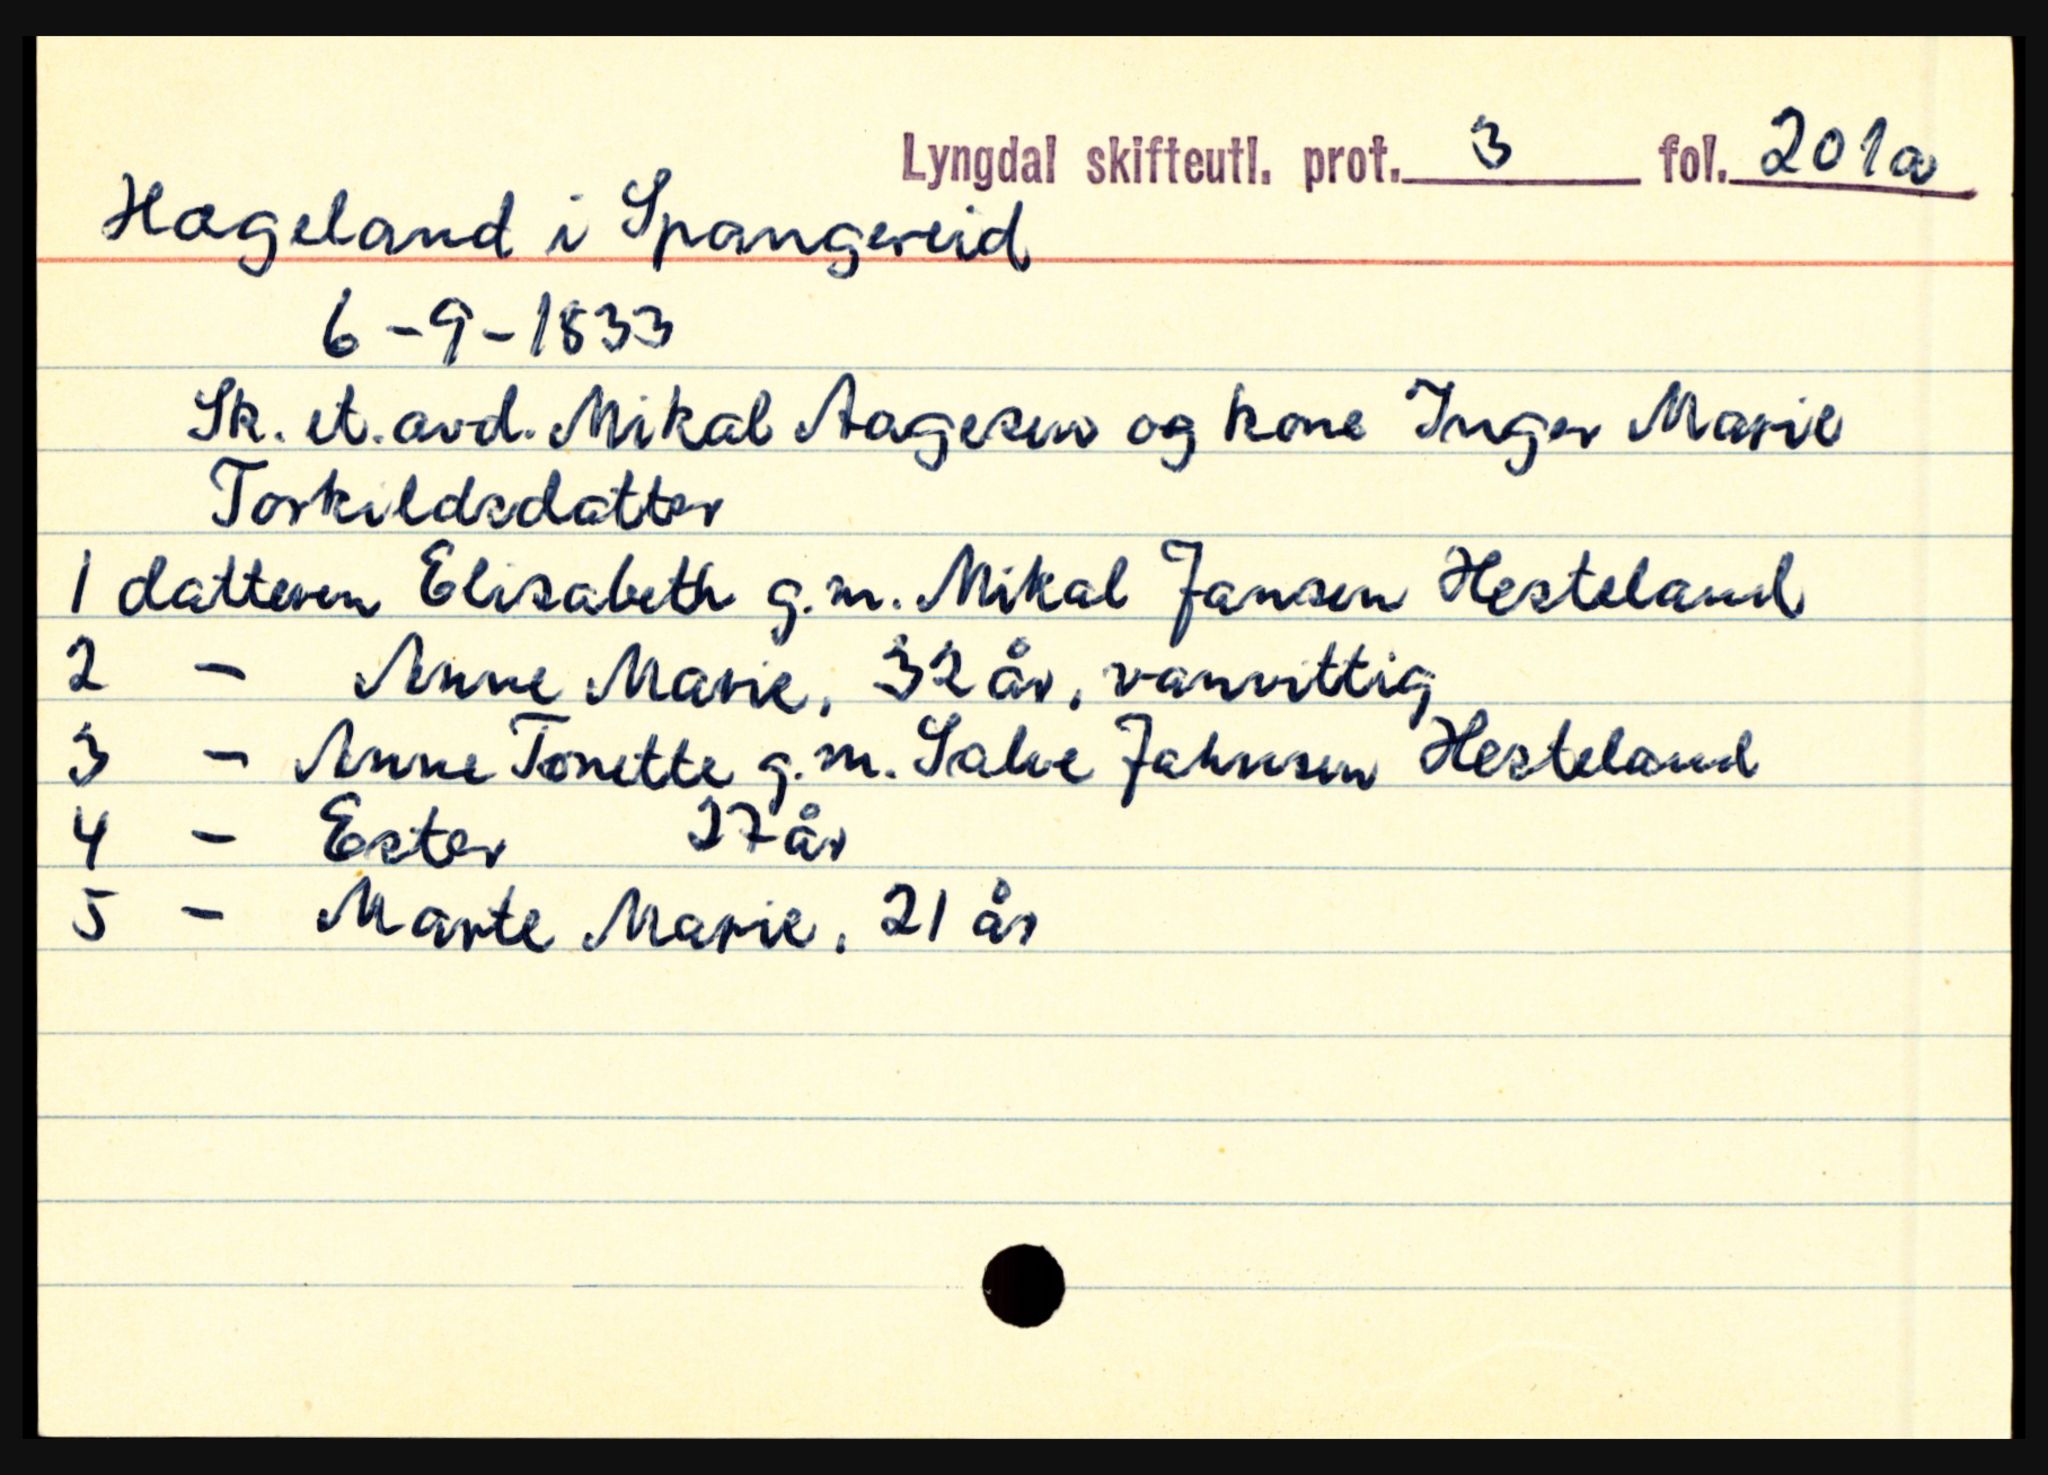 Lyngdal skifteutl. prot. 3 fol. 201a
Hageland i Spangereid
6-9-1833
Sk. et. avd. Mikal Aagesen og kone Inger Marie
Torkildsdatter
1 datteren Elisabeth g.m. Mikal Jansen Hesteland
2 - Anne Marie, 32 år, vanvittig
3 - Anne Tonette g.m. Salve Jahnsen Hesteland
4 - Ester 27 år
5 - Marte Marie, 21 år